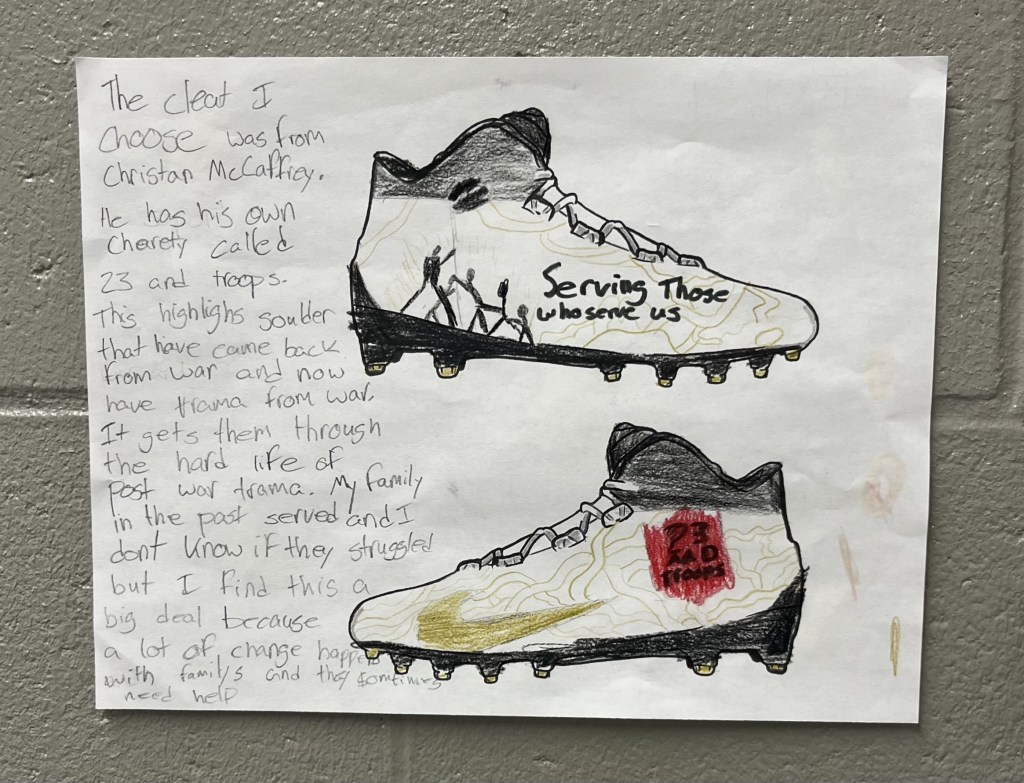 The cleat I
choose was from
Christan McCaffrey.
He has his own
Cherety called
23 and troops.
This highlighs soulder
that have came back
from war and now
have trama from war.
It gets them through
the hard life of
post war trama. My family
in the past served and I
dont know if they struggled
but I find this a
big deal because
a lot of change happens
with family's and they somtimes
need help
Serving Those
who serve us
23
AND
Troops